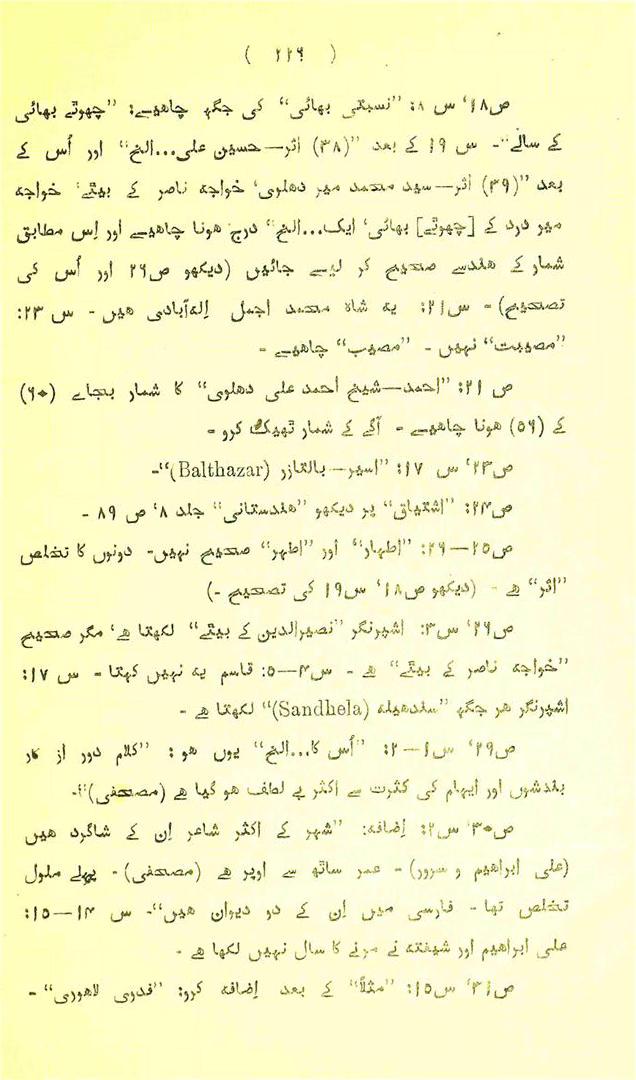 ( ۲۲۶ )
ص۱۸‘ س ۸: ”نسبتی بھائی“ کی جگہ چاھیے: ”چھوٹے بھائی
کے سالے“۔ س ۱۹ کے بعد ”(۳۸) اثر—حسین علی...الخ“ اور اُس کے
بعد ”(۳۹) اثر—سید محمد میر دھلوی‘ خواجہ ناصر کے بیٹے‘ خواجہ
میر درد کے [چھوٹے] بھائی‘ ایک...الخ“ درج ھونا چاھیے اور اِس مطابق
شمار کے ھندسے صحیح کر لیے جائیں (دیکھو ص۲۶ اور اُس کی
تصحیح) - س۲۱: یہ شاہ محمد اجمل اِلہ‌آبادی ھیں - س ۲۳:
”مصیبت“ نہیں - ”مصیب“ چاھیے -
ص ۲۱: ”احمد—شیخ احمد علی دھلوی“ کا شمار بجاے (۶۰)
کے (۵۶) ھونا چاھیے - آگے کے شمار ٹھیک کرو -
ص۲۳‘ س ۱۷: ”اسیر—بالتازر (Balthazar)“-
ص۲۴: ”اشتیاق“ پر دیکھو ”ھندستانی“ جلد ۸‘ ص ۸۹ -
ص۲۵—۲۶: ”اِظہار“ اور ”اطہر“ صحیح نہیں- دونوں کا تخلص
”اثر“ ھے - (دیکھو ص۱۸‘ س۱۹ کی تصحیح -)
ص۲۶‘ س۳: اشپرنگر ”نصیرالدین کے بیٹے“ لکھتا ھے‘ مگر صحیح
”خواجہ ناصر کے بیٹے“ ھے - س۴—۵: قاسم یہ نہیں کہتا - س ۱۷:
اشپرنگر ھر جگہ ”سندھیلہ (Sandhela)“ لکھتا ھے -
ص۲۹‘ س۱—۲: ”اُس کا...الخ“ یوں ھو : ”کلام دور از کار
بندشوں اور ایہام کی کثرت سے اکثر بے لطف ھو گیا ھے (مصحفی)“-
ص۳۰‘ س۲: اِضافہ: ”شہر کے اکثر شاعر اِن کے شاگرد ھیں
(علی ابراھیم و سرور) - عمر ساٹھ سے اوپر ھے (مصحفی) - پہلے ملول
تخلص تھا - فارسی میں اِن کے دو دیوان ھیں“- س ۱۴—۱۵:
علی ابراھیم اور شیفتہ نے مرنے کا سال نہیں لکھا ھے -
ص۳۱‘ س۱۵: ”مثلاً“ کے بعد اِضافہ کرو: ”فدوی لاھوری“ -